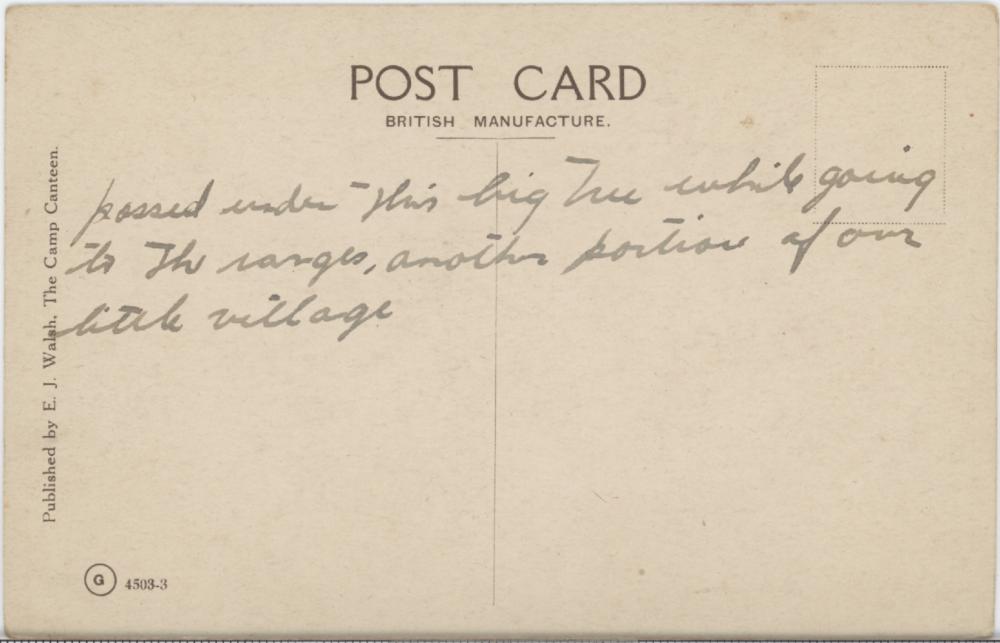 POST CARD
BRITISH MANUFACTURE.
passed under this big tree while going
to the ranges, another portion of our
little village
Published by E. J. Walsh, The Camp Canteen.
G 4503-3